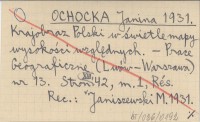 OCHOCKA Janina 1931.
Krajobraz Polski w świetle mapy
wysokości względnych. — Prace
Geograficzne (Lwów—Warszawa)
nr 13. Stron 42, m. 1, Rés.
Rec.: Janiszewski M. 1931.